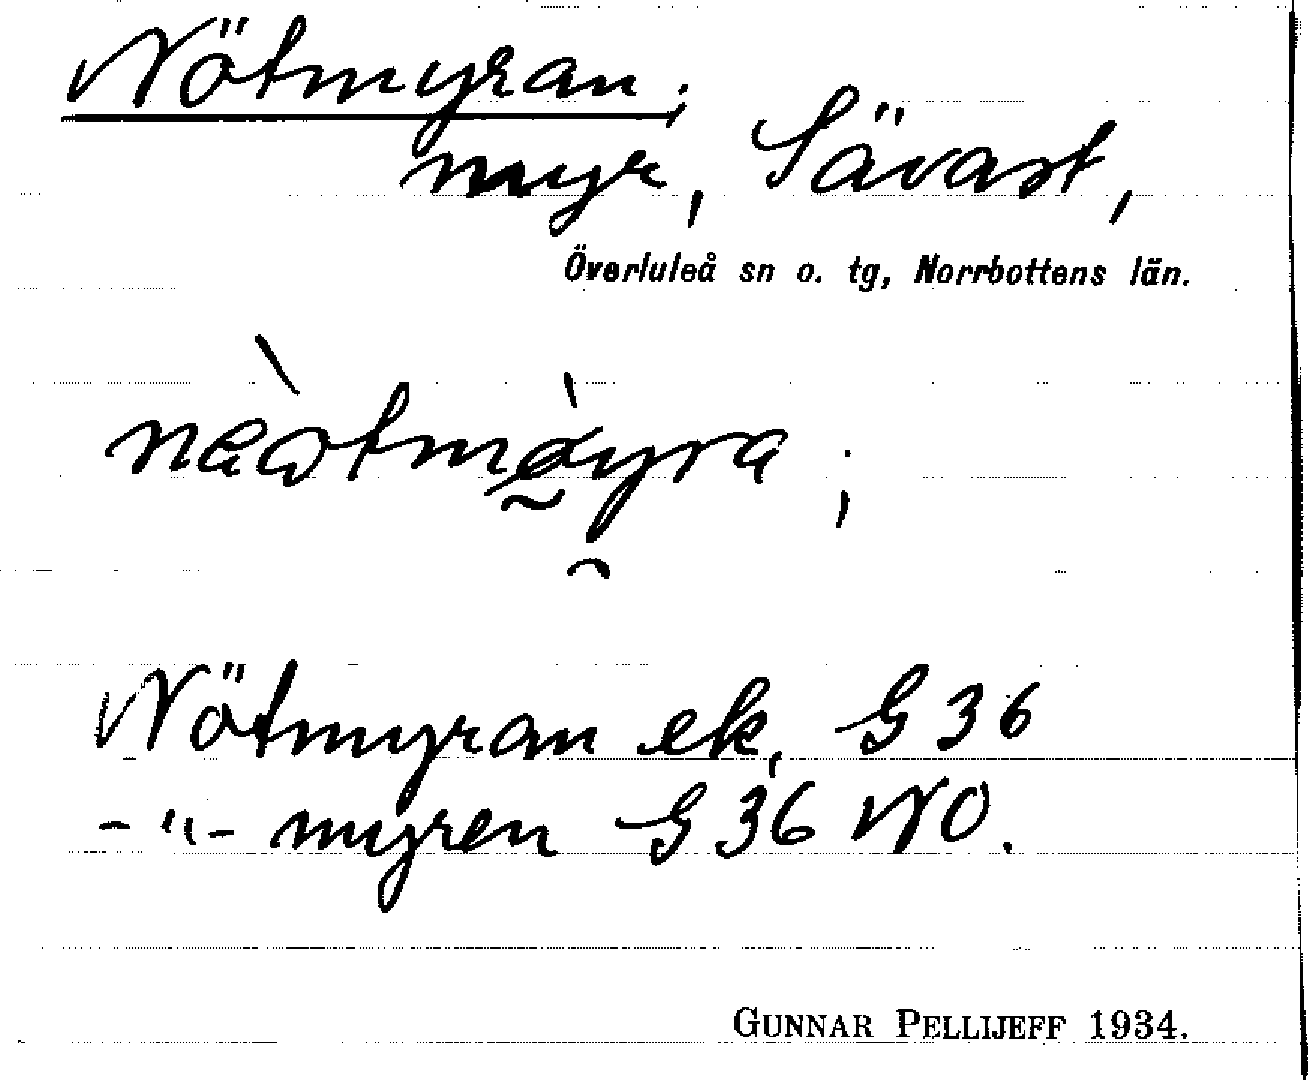 Nötmyran;
myr, Sävast,
Överluleå sn o. tg, Norrbottens län.
Nötmyran ek, G 36
-"- myren G 36 NO.
GUNNAR PELLIJEFF 1934.